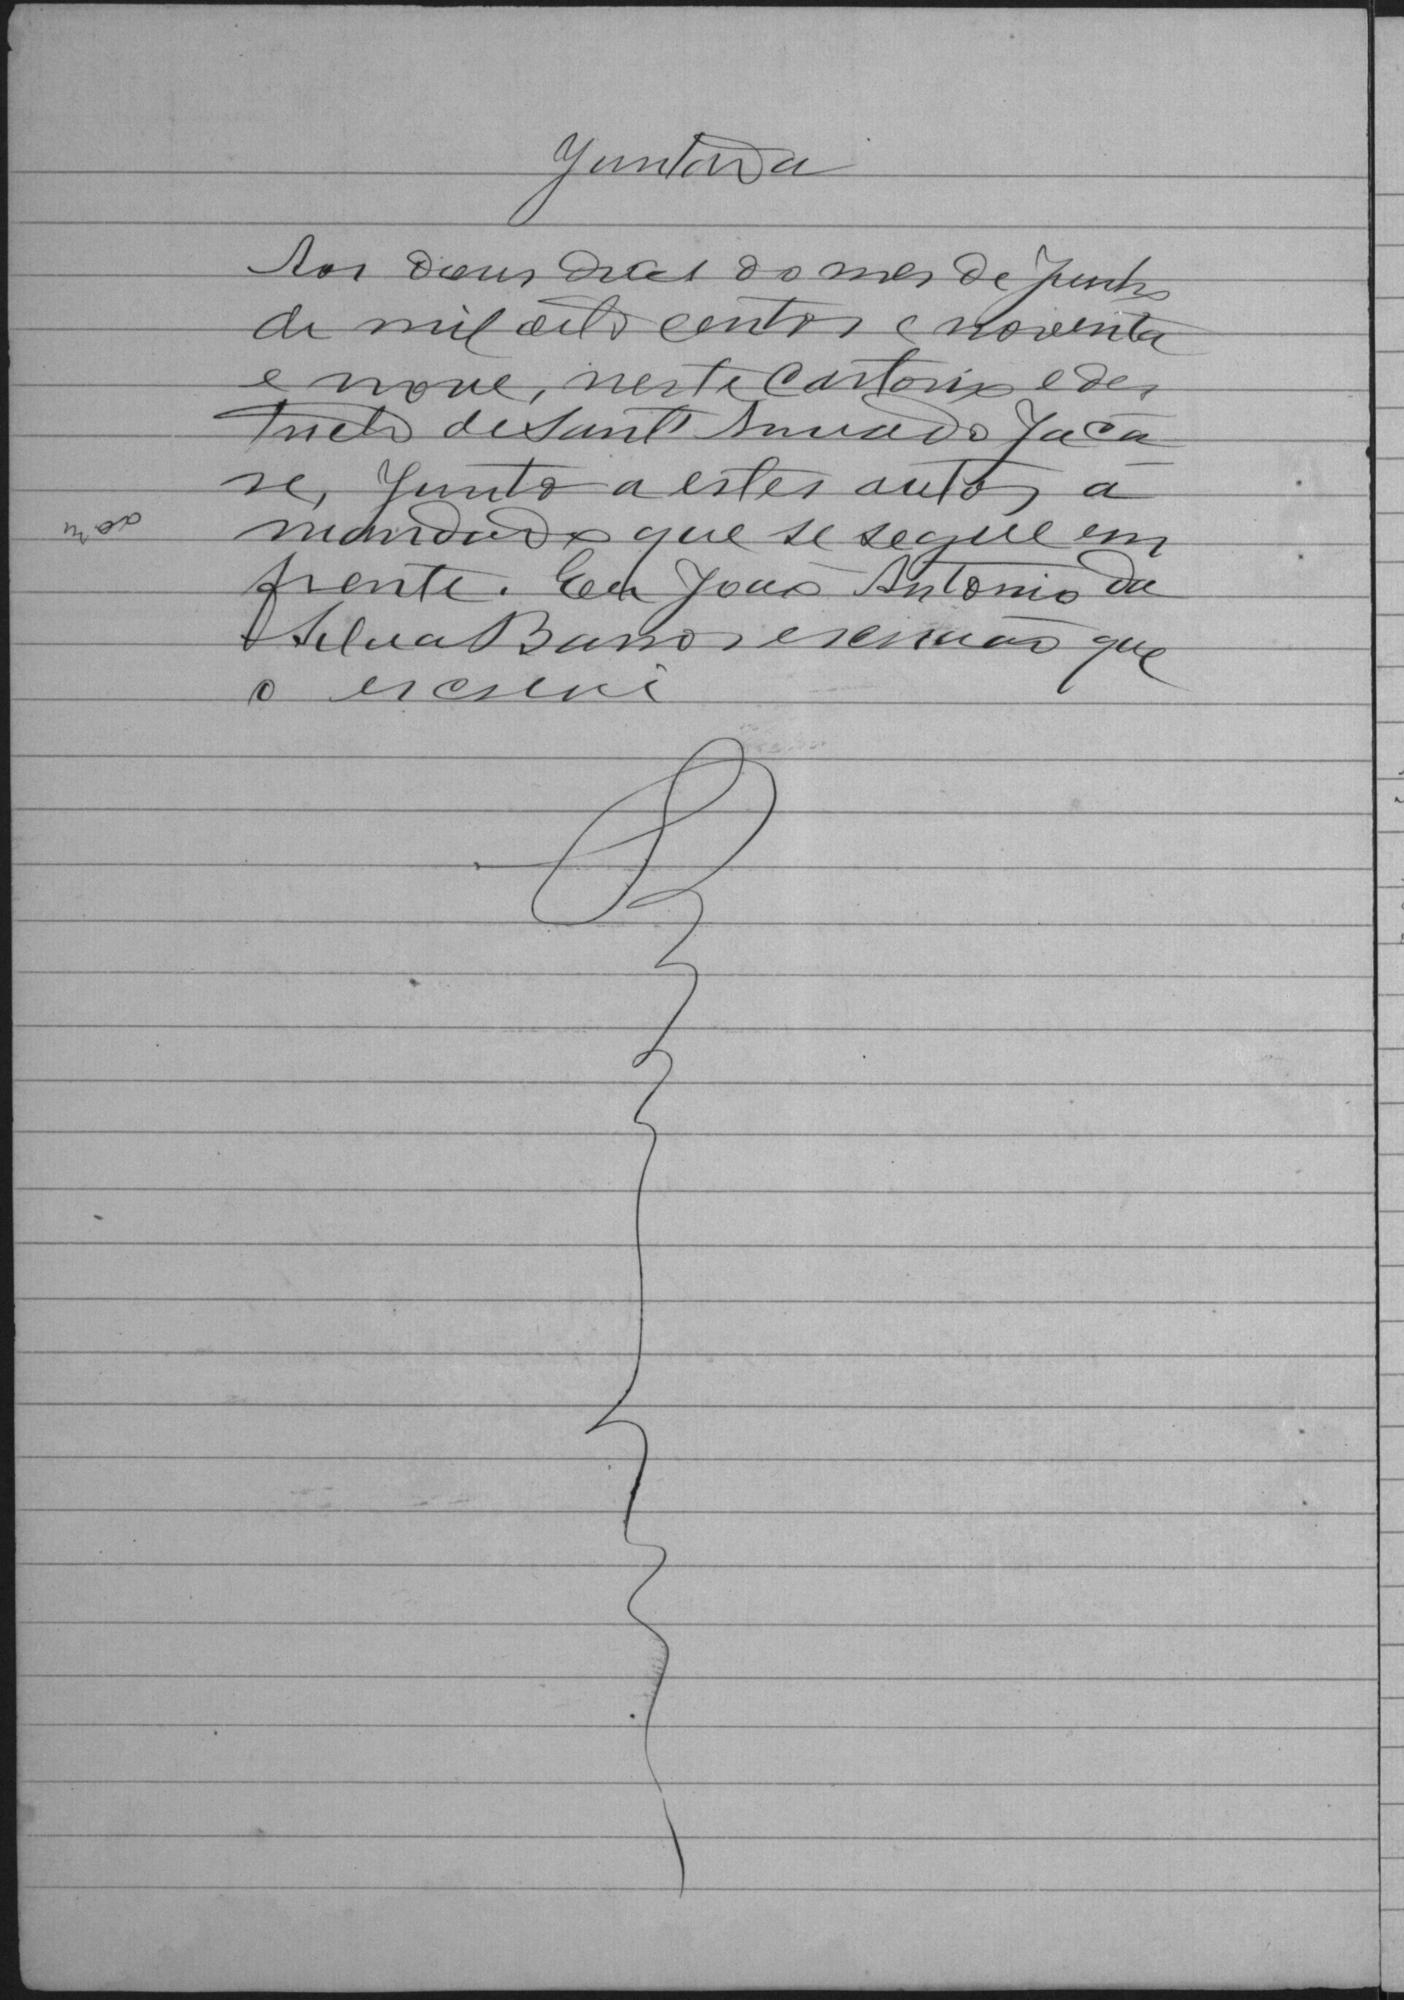 Juntada
Aos dous dias do mes de Junho
de mil oito centos e noventa
e nove, neste Cartorio e des
tricto de Sant Anna do Jaca
re, Junto a estes autos a
mandado que se segue em
frente. Eu João Antonio da
Silva Barros escrivão que
o escrevi